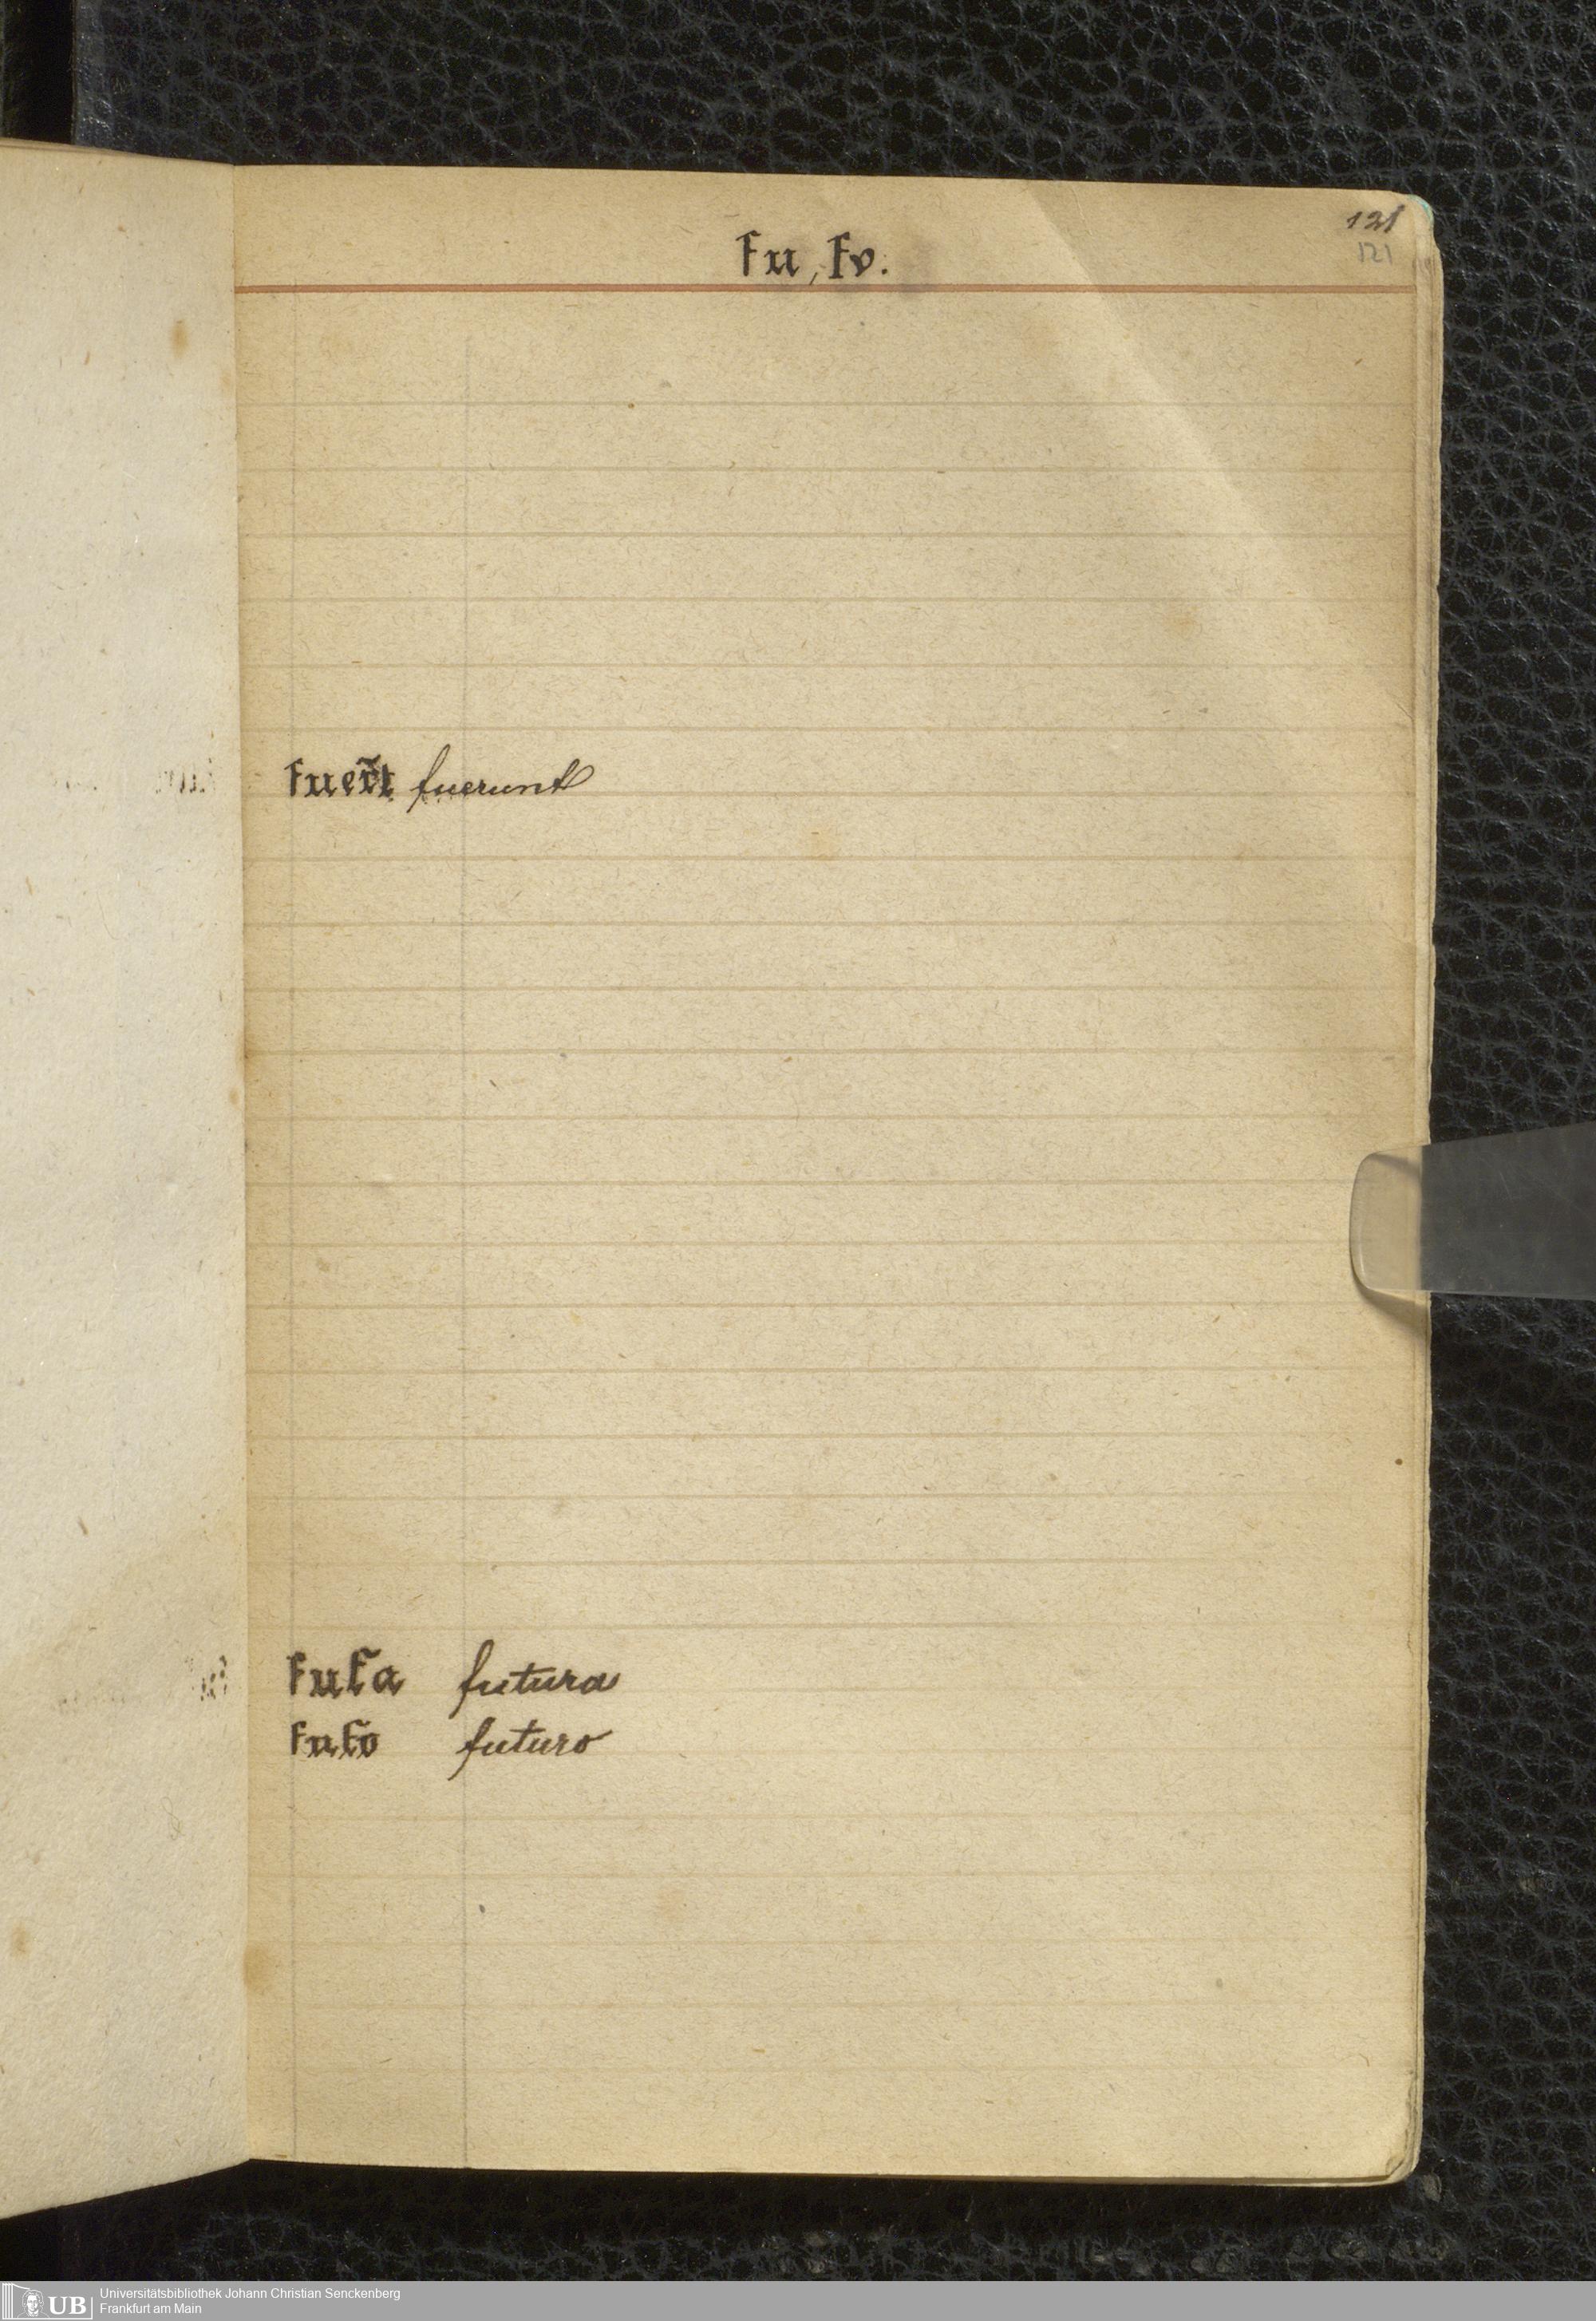 121
121
Fu, Fv.
fuer̃t fuerunt
fut̃a futura
fut̃o futuro
UB Universitätsbibliothek Johann Christian Senckenberg
Frankfurt am Main